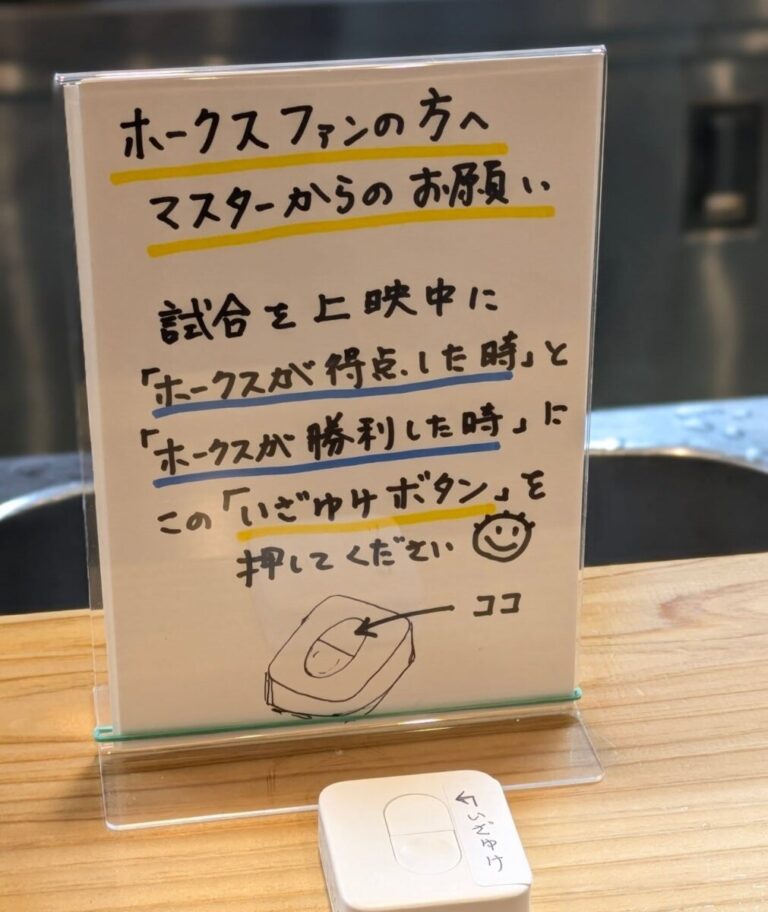 ホークスファンの方へ
マスターからのお願い
試合を上映中に
「ホークスが得点した時」と
「ホークスが勝利した時」に
この「いざゆけボタン」を
押してください
ココ
←いざゆけ